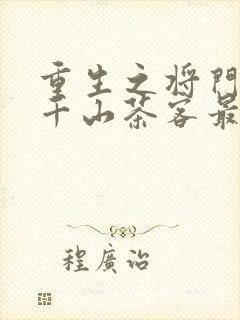 重生之将門
千山茶客最
程廣治